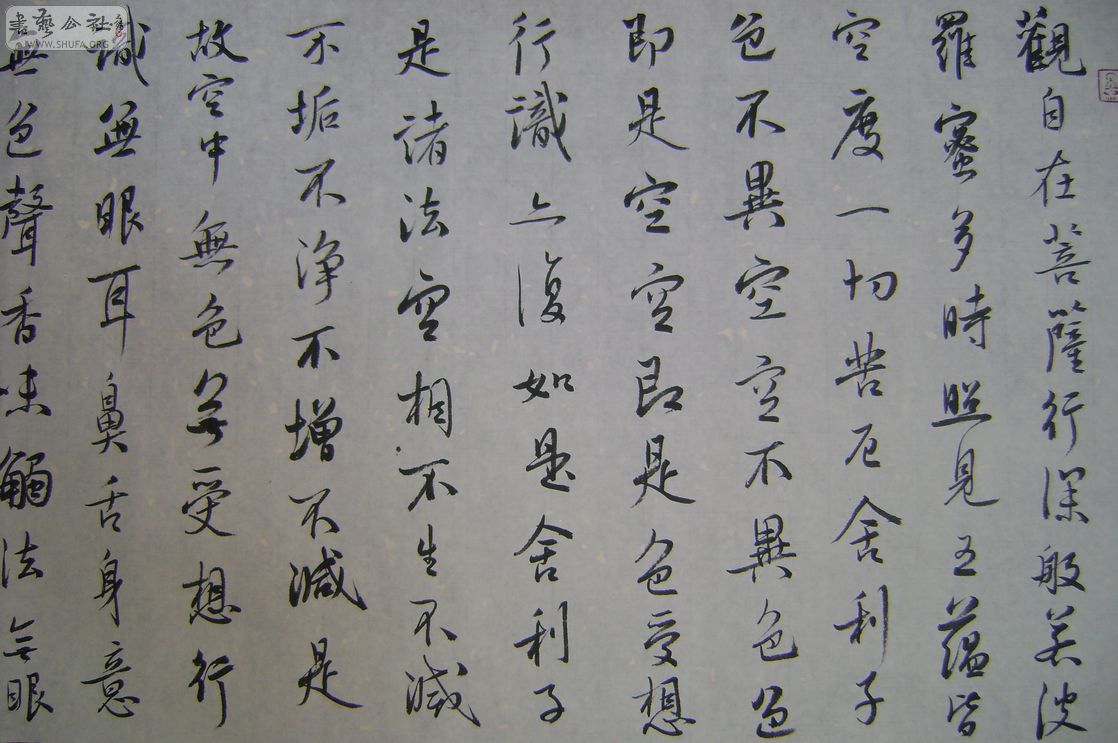 觀自在菩薩行深般若波
羅蜜多時照見五蘊皆
空度一切苦厄舍利子
色不異空空不異色色
即是空空即是色受想
行識亦復如是舍利子
是諸法空相不生不滅
不垢不淨不增不減是
故空中無色無受想行
識無眼耳鼻舌身意
無色聲香味觸法無眼
書藝公社
WWW.SHUFA.ORG